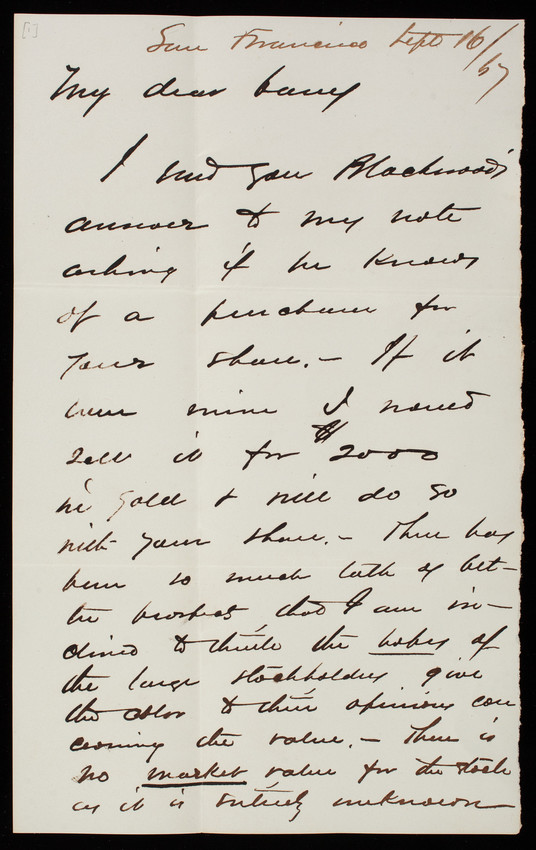 [1]
San Francisco Sept 16/67
My dear Casey
I send you Blackwood's
answer to my note
asking if he knows
of a purchaser for
your share. - If it
were mine I would
sell it for $2000
in gold & will do so
with your share. - There has
been so much talk of bet-
ter prospects, that I am in-
clined to think the hopes of
the large stockholders give
the color to their opinions con
cerning the value. - There is
no market value for the stock
as it is entirely unknown